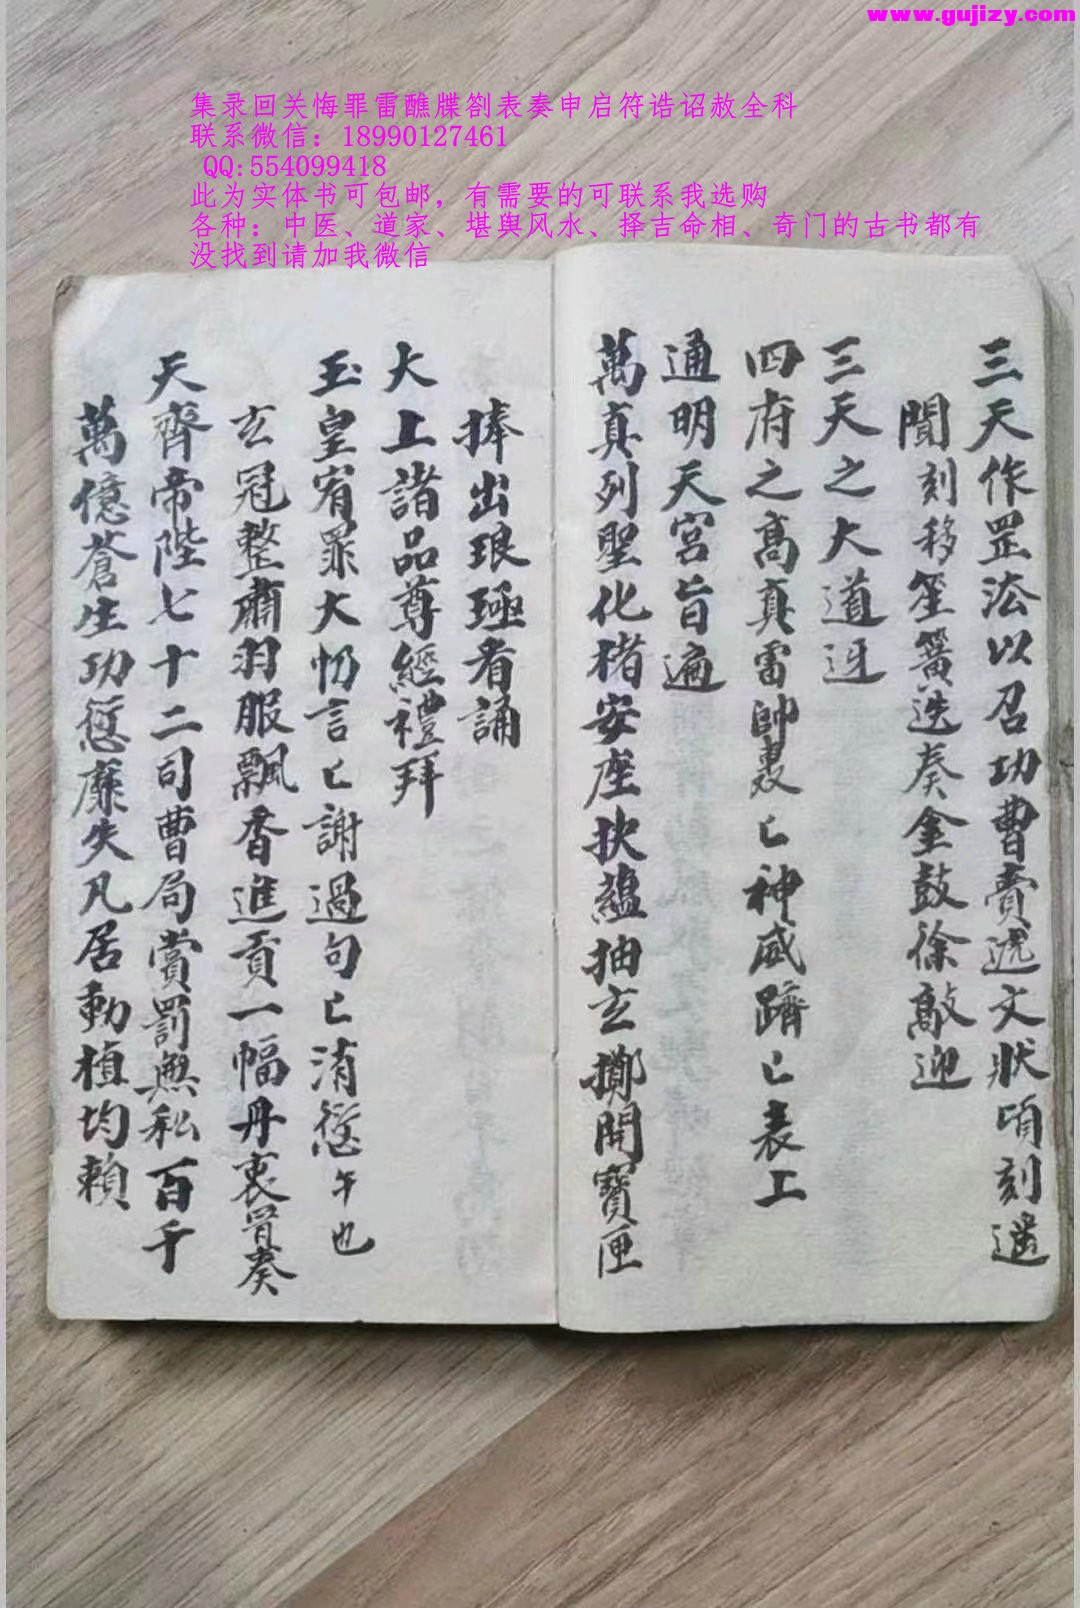 www.gujizy.com
集录回关悔罪雷醮牒劄表奏申启符诰诏赦全科
联系微信：18990127461
QQ:554099418
此为实体书可包邮，有需要的可联系我选购
各种：中医、道家、堪舆风水、择吉命相、奇门的古书都有
没找到请加我微信
三天作罡法以召功曹賫遞文狀頃刻遥
聞刻移笙簧迭奏金鼓徐敲迎
三天之大道迓
四府之髙真雷帥裏亡神威躋亡表上
通明天宮旨遍
萬真列聖化楮安座抉蘊抽玄擲開寶匣
捧出琅函者誦
大上諸品尊經禮拜
玉皇宥罪大忏言亡謝過句亡消愆午也
玄冠整肅羽服飄香進貢一幅丹衷旨奏
天齊帝陛七十二司曹局賞罰無私百千
萬億蒼生功愆靡失凡居動植均賴